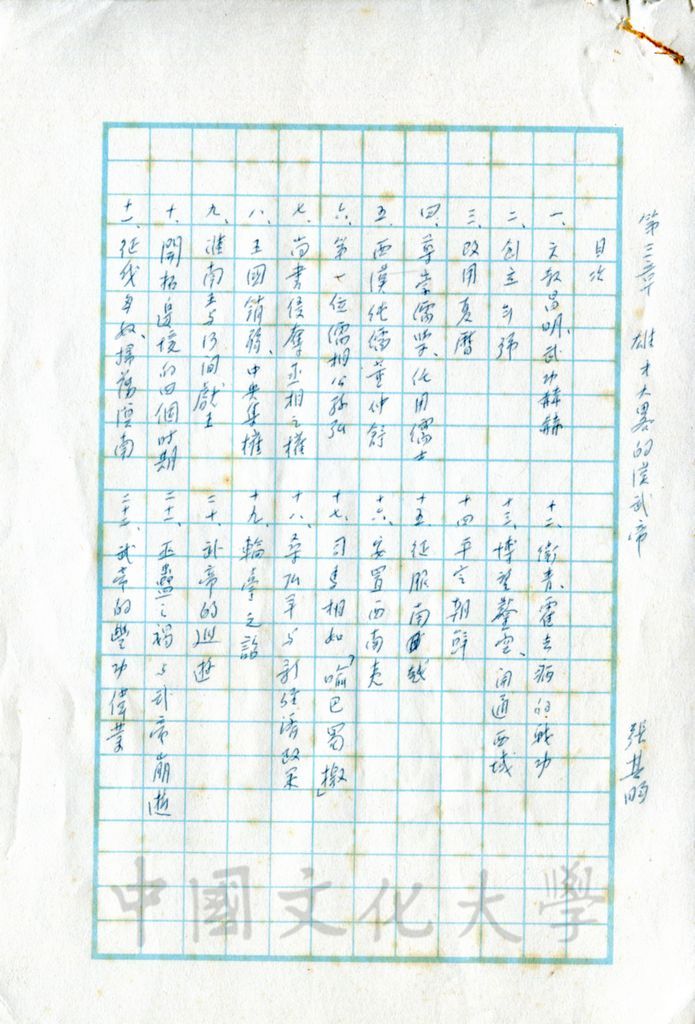 第三章 雄才大畧的漢武帝 張其昀
目次
一、文教昌明、武功赫赫
二、創立年號
三、改用夏曆
四、尊崇儒學、任用儒士
五、西漢純儒董仲舒
六、第一位儒相公孫弘
七、尚書侵奪丞相之權
八、王國銷弱、中央集權
九、淮南王与河间獻王
十、開拓邊境的四個时期
十一、征伐匈奴、掃蕩漠南
十二、衛青、霍去病的戰功
十三、博望鑿空、闻通西域
十四、平定朝鮮
十五、征服南越
十六、安置西南夷
十七、司馬相如「喻巴蜀檄」
十八、桑弘羊与新经濟政策
十九、輪臺之詔
二十、武帝的巡遊
二十一、巫蠱之禍与武帝崩逝
二十二、武帝的豐功偉業
中國文化大學